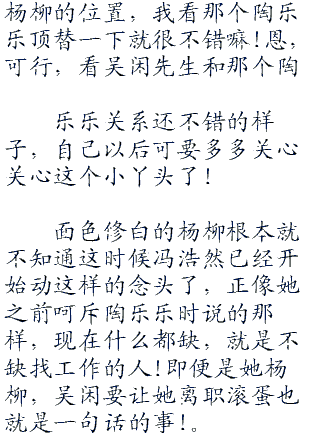 杨柳的位置，我看那个陶乐
乐顶替一下就很不错嘛!恩，
可行，看吴闲先生和那个陶
乐乐关系还不错的样
子，自己以后可要多多关心
关心这个小丫头了!
面色修白的杨柳根本就
不知通这时候冯浩然已经开
始动这样的念头了，正像她
之前呵斥陶乐乐时说的那
样，现在什么都缺，就是不
缺找工作的人!即便是她杨
柳，吴闲要让她离职滚蛋也
就是一句话的事!。